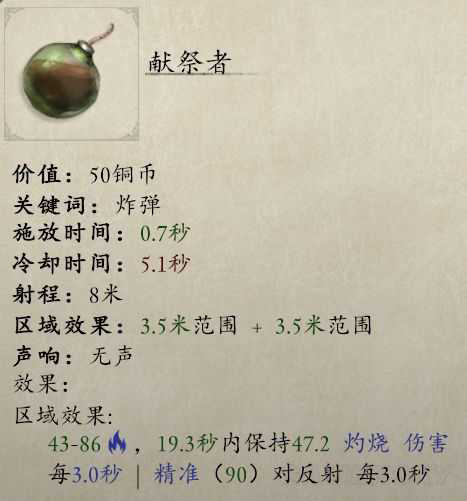 献祭者
价值：50铜币
关键词：炸弹
施放时间：0.7秒
冷却时间：5.1秒
射程：8米
区域效果：3.5米范围 + 3.5米范围
声响：无声
效果：
区域效果:
43-86 ，19.3秒内保持47.2 灼烧 伤害
每3.0秒 | 精准（90）对反射 每3.0秒